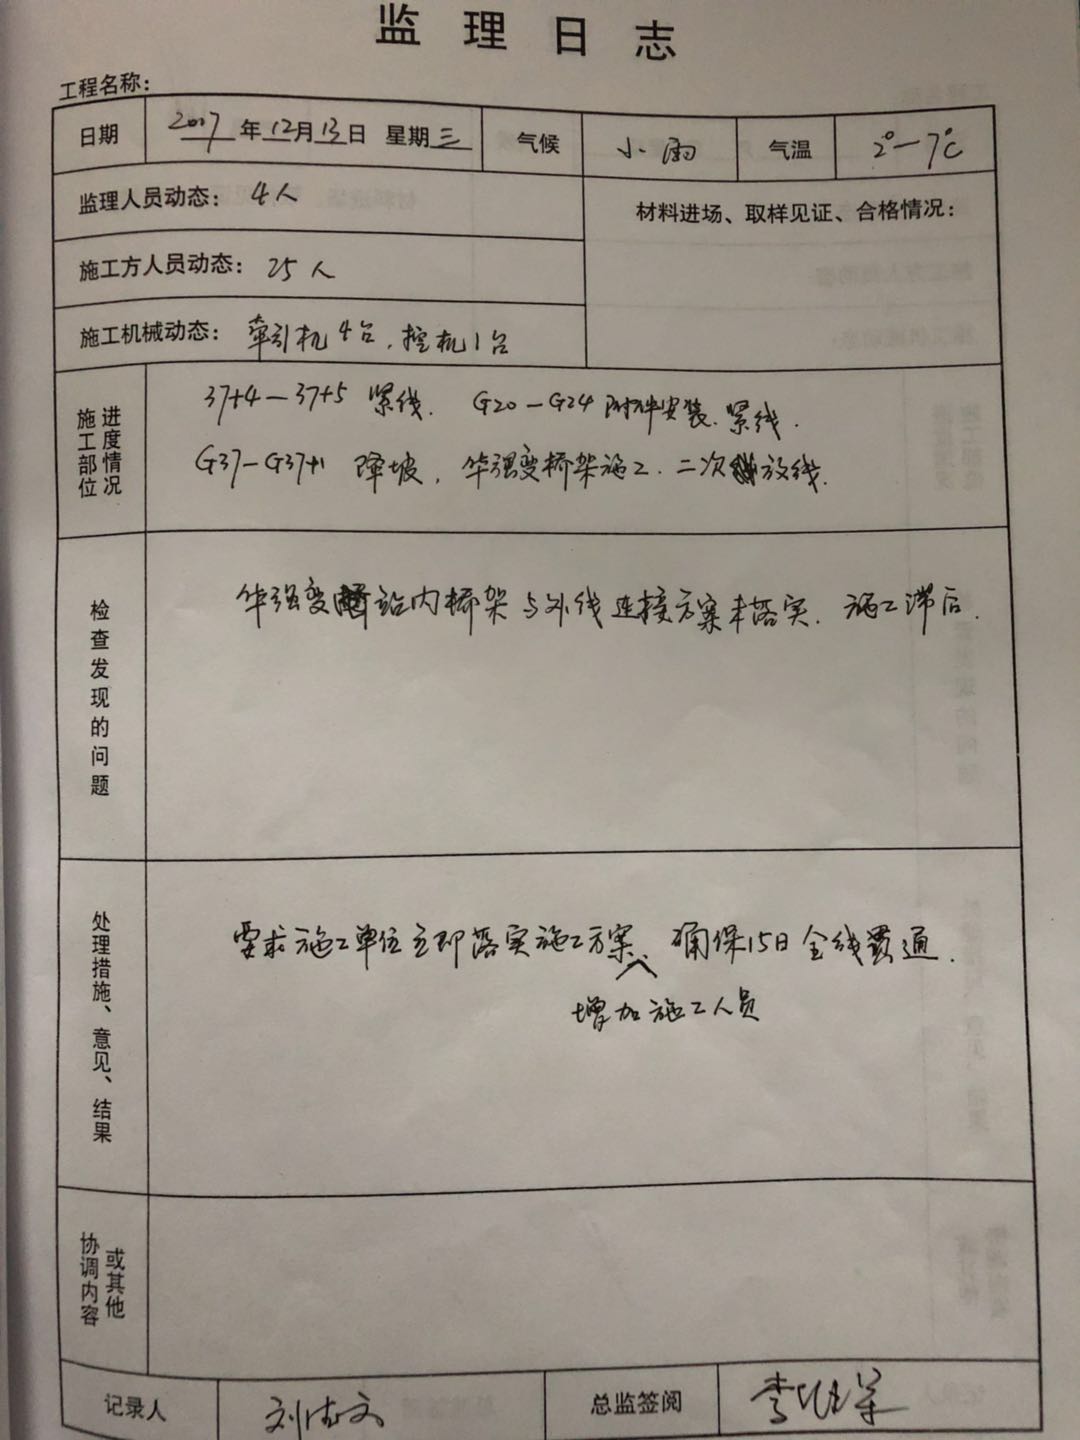 监理日志
工程名称：
日期 2017年12月13日 星期三 气候 小雨 气温 2°—7℃
监理人员动态：4人
材料进场、取样见证、合格情况：
施工方人员动态：25人
施工机械动态：牵引机4台，挖机1台
施工部位进度情况
37+4—37+5 紧线. G20—G24附件安装.紧线.
G37—G37+1 降坡，华强变桥架施工.二次放线.
检查发现的问题
华强变站内桥架与外线连接方案未落实.施工滞后.
处理措施、意见、结果
要求施工单位立即落实施工方案、确保15日全线贯通.
增加施工人员
协调内容或其他
记录人 总监签阅